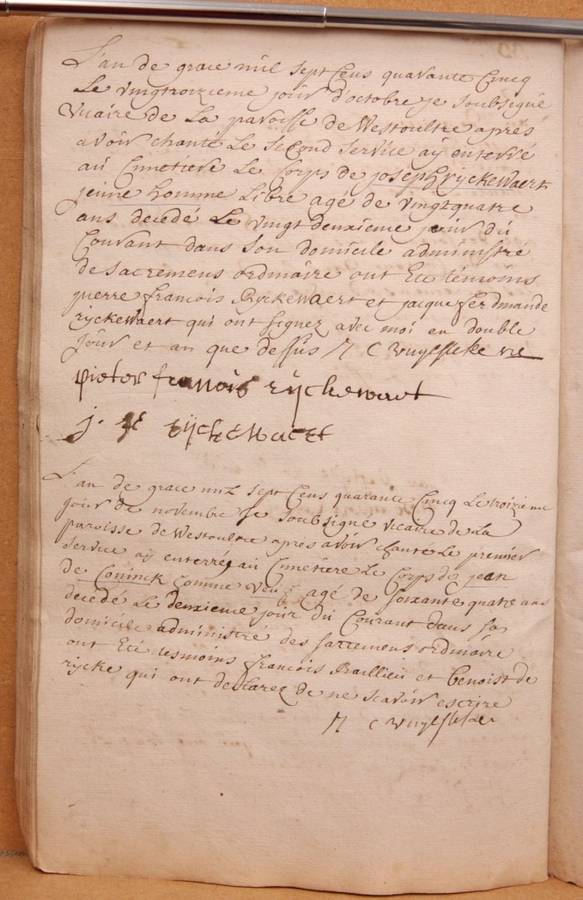 L'an de grace mil sept Cens quarante Cincq
Le vingtroizieme jour d'octobre je soubsigné
vicaire de La paroisse de Westoultre apres
avoir chanté Le second service aÿ enterré
au Cimetiere Le Corps de joseph rÿckewaert
jeune homme Libre agé de vingtquatre
ans decedé Le vingt deuxieme jour du
Courant dans son domicile administré
de sacremens ordinaire ont Eté témoins
pierre francois Rÿckewaert et jacque ferdinande
rÿckewaert qui ont signez avec moi en double
jour et an que dessus M C wuylsteke vic
pieter franoois rijckewaert
j. f rijckewaert
L'an de grace mil sept Cens quarante Cincq Le troizieme
jour de novembre je soubsigné vicaire de La
paroisse de Westoultre apres avoir chanté Le premier
service aÿ enterré au Cimetiere Le Corps de jean
de Coninck homme agé de soixante quatre ans
decedé Le deuxieme jour du Courant dans son
domicile administré des sacremens ordinaire
ont Eté tesmoins francois Baillieu et benoist de
rycke qui ont declarez de ne scavoir escrire
M C wuylsteke